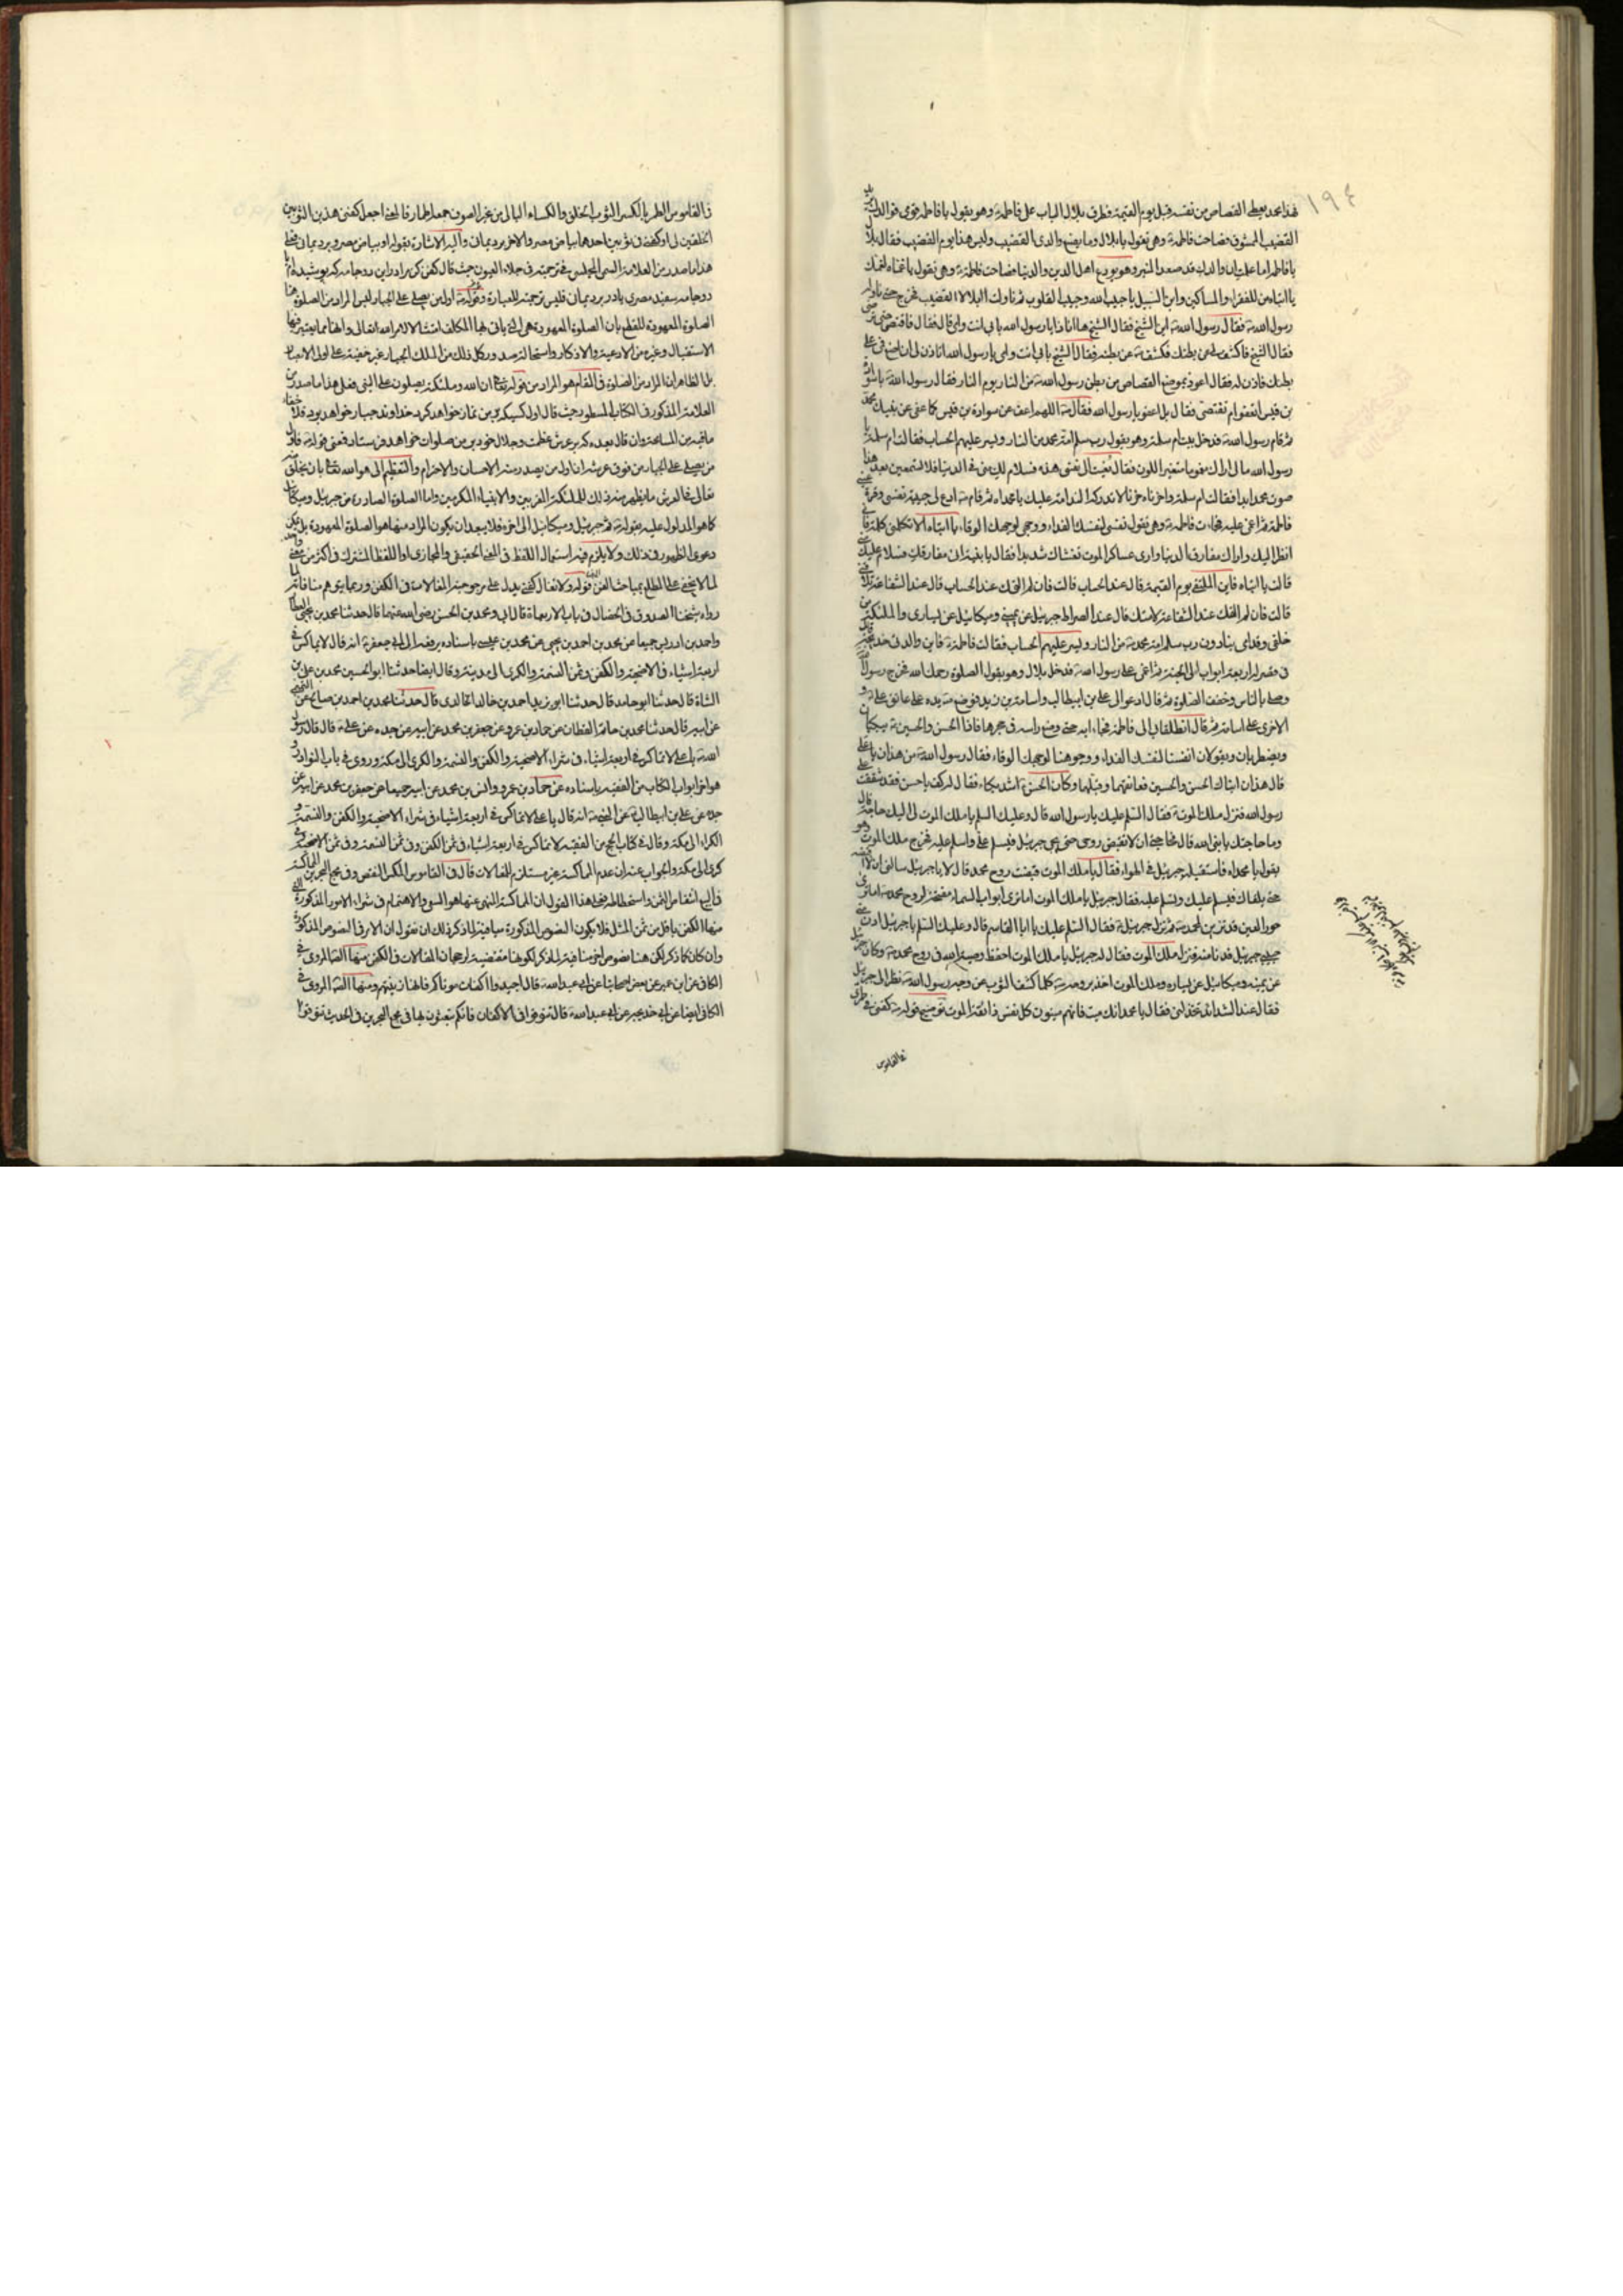 ١٩٤
هذا محمد يعطى القصاص من نفسه قبل يوم القيمة وطرق بلال الباب على فاطمة وهو يقول يا فاطمة قومى فوالدك يريد
القضيب الممشوق فصاحت فاطمة وهى تقول يا بلال وما يصنع والدى القضيب وليس هذا يوم القضيب فقال بلال
يا فاطمة اما علمت ان والدك قد صعد المنبر وهو يودع اهل الدين والدنيا فصاحت فاطمة وهى تقول يا غماه لغمك
يا ابتاه من للفقراء والمساكين وابن السبيل يا حبيب الله وحبيب القلوب ثم ناولت البلالا القضيب فخرج حتى ناوله
رسول الله فقال رسول الله اين الشيخ فقال الشيخ ها انا ذا يا رسول الله بابى انت وامى قال فقال فاقتص حتى ترضى
فقال الشيخ فاكشف لى عن بطنك فكشف عن بطنه فقال الشيخ بابى انت وامى يا رسول الله اتاذن لى ان اضع فمى على
بطنك فاذن له فقال اعوذ بموضع القصاص من بطن رسول الله من النار يوم النار فقال رسول الله يا سوادة
بن قيس اتعفو ام تقتص فقال بل اعفو يا رسول الله فقال اللهم اعف عن سوادة بن قيس كما عفى عن نبيك محمد
ثم قام رسول الله فدخل بيت ام سلمة وهو يقول رب سلم امة محمد من النار ويسر عليهم الحساب فقالت ام سلمة يا
رسول الله مالى اراك مغموما متغير اللون فقال نعيت الى نفسى هذه فسلام لك منى فى الدنيا فلا تسمعين بعد هذا
صوت محمد ابدا فقالت ام سلمة واحزناه حزنا لا تدركه الندامة عليك يا محمداه ثم قال ادع لى حبيبة نفسى وقرة عينى
فاطمة ثم اغمى عليه فجاءت فاطمة وهى تقول نفسى لنفسك الفداء ووجهى لوجهك الوقاء يا ابتاه الا تكلمنى كلمة فانى
انظر اليك واراك مفارق الدنيا وارى عساكر الموت تغشاك شديدا فقال يا بنية انى مفارقك فسلام عليك منى
قالت يا ابتاه فاين الملتقى يوم القيمة قال عند الحساب قالت فان لم القك عند الحساب قال عند الشفاعة لامتى
قالت فان لم القك عند الشفاعة لامتك قال عند الصراط جبرئيل عن يمينى وميكائيل عن يسارى والملئكة من
خلفى وقدامى ينادون رب سلم امة محمد من النار ويسر عليهم الحساب فقالت فاطمة فاين والدتى خديجة قال
فى قصر له اربعة ابواب الى الجنة ثم اغمى على رسول الله فدخل بلال وهو يقول الصلوة رحمك الله فخرج رسول الله
وصلى بالناس وخفف الصلوة ثم قال ادعوا لى على بن ابيطالب واسامة بن زيد فوضع يده على عاتق على و
الاخرى على اسامة ثم قال انطلقا بى الى فاطمة فجاءا به حتى وضع راسه فى حجرها فاذا الحسن والحسين يبكيان
ويضطربان ويقولان انفسنا لنفسك الفداء ووجوهنا لوجهك الوقاء فقال رسول الله من هذان يا على
قال هذان ابناك الحسن والحسين فعانقهما وقبلهما وكان الحسن اشد بكاء فقال له كف يا حسن فقد شققت على
رسول الله فنزل ملك الموت فقال السلم عليك يا رسول الله قال وعليك السلم يا ملك الموت لى اليك حاجة قال
وما حاجتك يا نبى الله قال حاجتى ان لا تقبض روحى حتى يجئ جبرئيل فيسلم على واسلم عليه فخرج ملك الموت وهو
يقول يا محمداه فاستقبله جبرئيل فى الهواء فقال يا ملك الموت قبضت روح محمد قال لا يا جبرئيل سالنى ان لا اقبضه
حتى يلقاك فيسلم عليك وتسلم عليه فقال جبرئيل يا ملك الموت اما ترى ابواب السماء مفتحة لروح محمد اما ترى
حور العين قد تزين لمحمد ثم نزل جبرئيل فقال السلم عليك يا ابا القاسم قال وعليك السلم يا جبرئيل ادن منى
حبيبى جبرئيل فدنا منه فنزل ملك الموت فقال له جبرئيل يا ملك الموت احفظ وصية الله فى روح محمد وكان جبرئيل
عن يمينه وميكائيل عن يساره وملك الموت اخذ بروحه كلما كشف الثوب عن وجه رسول الله نظر الى جبرئيل
فقال عند الشدائد تخذلنى فقال يا محمد انك ميت وانهم ميتون كل نفس ذائقة الموت توضيح قوله كفنى فى طمرى
فى القاموس
فى القاموس الطمر بالكسر الثوب الخلق والكساء البالى من غير الصوف جمعه اطمار فالمعنى اجعل كفنى هذين الثوبين
الخلقين لى او كفنى فى ثوبين احدهما بياض مصر والاخر برد يمان واليه الاشارة بقوله او بياض مصر وبرد يمان فعلى
هذا ما صدر من العلامة السمى المجلسى فى ترجمته فى جلاء العيون حيث قال كفن كن مرا در اين دو جامه كه پوشيده ام يا
دو جامه سفيد مصرى يا در برد يمان فليس ترجمة للعبارة وقوله اول من يصلى على الجبار ليس المراد من الصلوة هنا
الصلوة المعهودة للقطع بان الصلوة المعهودة هى التى ياتى بها المكلف امتثالا لامر الله تعالى وانها مما يعتبر فيها
الاستقبال وغيره من الادعية والاذكار واستحالة صدور كل ذلك من الملك الجبار غير خفية على اولى الابصار
بل الظاهر ان المراد من الصلوة فى المقام هو المراد من قوله تعالى ان الله وملئكته يصلون على النبى وعلى هذا ما صدر من
العلامة المذكور فى الكتاب المسطور حيث قال اول كسيكه بر من نماز خواهد كرد خداوند جبار خواهد بود فلا خفاء
ما فيه من المسامحة وان قال بعده كه بر عرش عظمت وجلال خود بر من صلوات خواهد فرستاد فمعنى قوله فاول
من يصلى على الجبار من فوق عرشه ان اول من يصدر منه الاحسان والاحترام والتعظيم الى هو الله تعالى بان يخلق
تعالى فى العرش ما يظهر منه ذلك للملئكة المقربين والانبياء المكرمين واما الصلوة الصادرة من جبرئيل وميكائيل
كما هو المدلول عليه بقوله ثم جبرئيل وميكائيل الى اخره فلا يبعد ان يكون المراد منها هو الصلوة المعهودة بل يمكن
دعوى الظهور فى ذلك ولا يلزم فيه استعمال اللفظ فى المعنى الحقيقى والمجازى او اللفظ المشترك فى اكثر من معنى واحد
لما لا يخفى على المطلع بمباحث الفن قوله ولا تغال كفنى يدل على مرجوحية المغالات فى الكفن وربما يتوهم منافاته لما
رواه شيخنا الصدوق فى الخصال فى باب الاربعة قال ابى ومحمد بن الحسن رضى الله عنهما قال حدثنا محمد بن يحيى العطار
واحمد بن ادريس جميعا عن محمد بن احمد بن يحيى عن محمد بن عيسى باسناده يرفعه الى ابى جعفر انه قال لا تماكس فى
اربعة اشياء فى الاضحية والكفن وثمن النسمة والكرى الى مكة وقال ايضا حدثنا ابو الحسين محمد بن على بن
الشاة قال حدثنا ابو حامد قال حدثنا ابو يزيد احمد بن خالد الخالدى قال حدثنا محمد بن احمد بن صالح التميمى عن
عن ابيه قال حدثنا محمد بن حاتم القطان عن حماد بن عمرو عن جعفر بن محمد عن ابيه عن جده عن على قال قال رسول
الله يا على لا تماكس فى اربعة اشياء فى شراء الاضحية والكفن والنسمة والكرى الى مكة وروى فى باب النوادر و
هو اخر ابواب الكتاب من الفقيه باسناده عن حماد بن عمرو وانس بن محمد عن ابيه جميعا عن جعفر بن محمد عن ابيه عن
جده عن على بن ابيطالب عن النبى انه قال يا على لا تماكس فى اربعة اشياء فى شراء الاضحية والكفن والنسمة و
الكراء الى مكة وقال فى كتاب الحج من الفقيه لا تماكس فى اربعة اشياء فى ثمن الكفن وفى ثمن النسمة وفى ثمن الاضحية وفى
كرى الى مكة والجواب عنه ان عدم المماكسة غير مستلزم للمغالات قال فى القاموس المكس النقص وفى مجمع البحرين المماكسة
فى البيع انتقاص الثمن واستحطاطه فعلى هذا القول ان المماكسة المنهى عنها هو السعى والاهتمام فى شراء الامور المذكورة التى
منها الكفن باقل من ثمن المثل فلا يكون النصوص المذكورة منافية لما ذكر ذلك ان نقول ان الامر فى النصوص المذكورة
وان كان كما ذكر لكن هنا نصوص اخر منافية لما ذكر لكونها مقتضية لرجحان المغالات فى الكفن منها المروى فى
الكافى عن ابن ابى عمير عن بعض اصحابنا عن ابى عبد الله قال اجيدوا اكفان موتاكم فانها زينتهم ومنها المروى فى
الكافى ايضا عن ابى خديجة عن ابى عبد الله قال تنوقوا فى الاكفان فانكم تبعثون بها فى مجمع البحرين فى الحديث تنوقوا